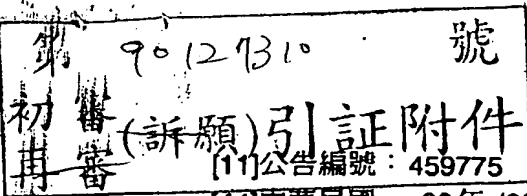 第 90127310 號
初審
再審
(訴願)引証附件
[11]公告編號：459775